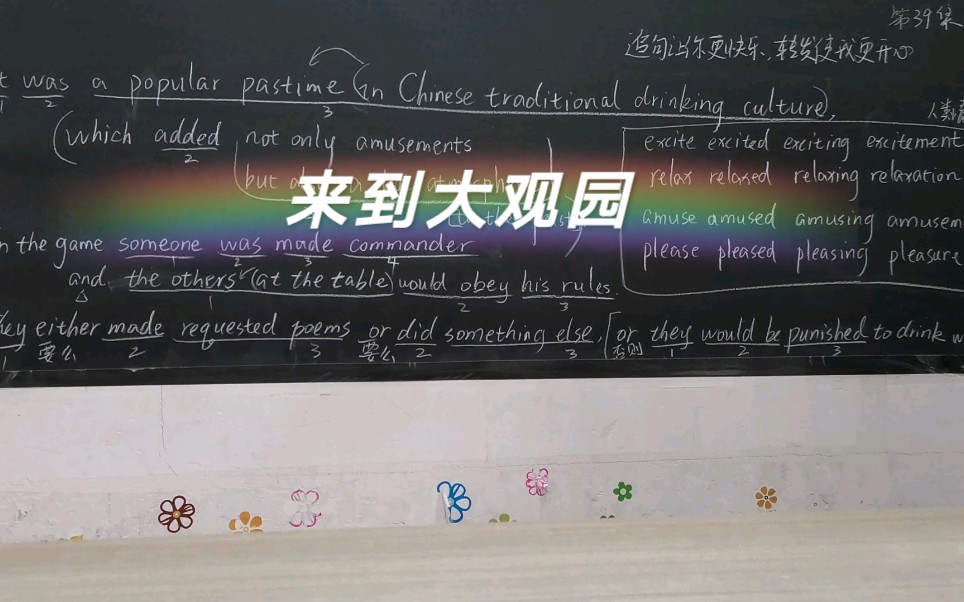 第39集
追句让你更快乐、转发使我更开心
t was a popular pastime (in Chinese traditional drinking culture),
1 2 3
人类情
(which added not only amusements
2
but
来到大观园
excite excited exciting excitement
relax relaxed relaxing relaxation
amuse amused amusing amusem
please pleased pleasing pleasure
n the game someone was made commander
1 2 3 4
and the others (at the table) would obey his rules.
1 2 3
hey either made requested poems or did something else, [or they would be punished to drink w
1 要么 2 3 要么 2 3 否则 1 2 3